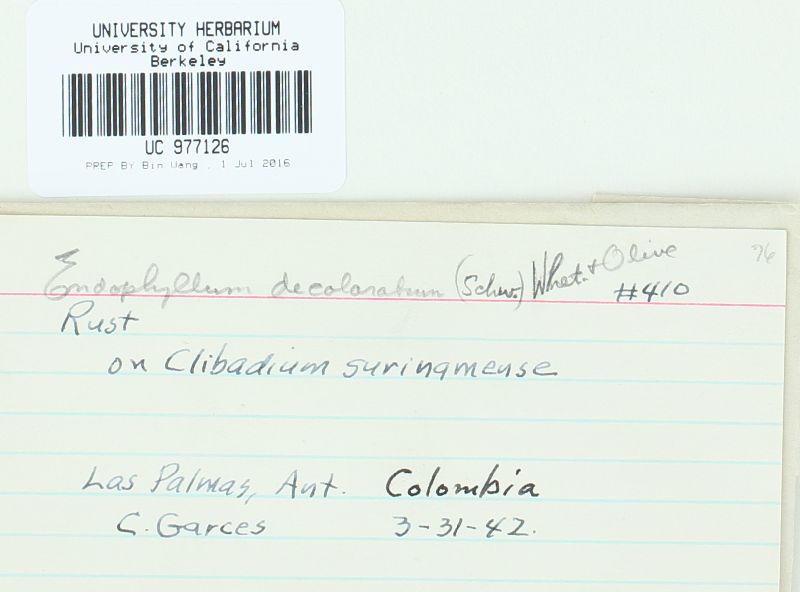 UNIVERSITY HERBARIUM
University of California
Berkeley
UC 977126
PREP BY Bin Wang , 1 Jul 2016
96
Endophyllum decoloratum (Schw.) Whet. & Olive
#410
Rust
on Clibadium surinamense
Las Palmas, Ant. Colombia
C. Garces 3-31-42.